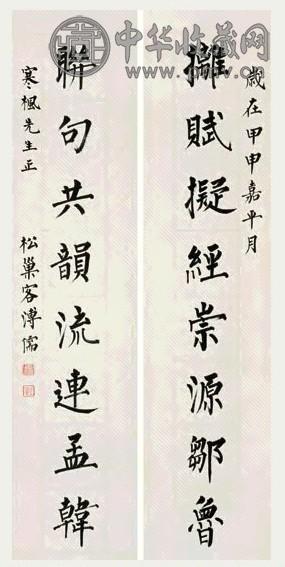 中华收藏网
歲在甲申嘉平月
攡賦擬經崇源鄒魯
聯句共韻流連孟韓
寒楓先生正
松巢客溥儒